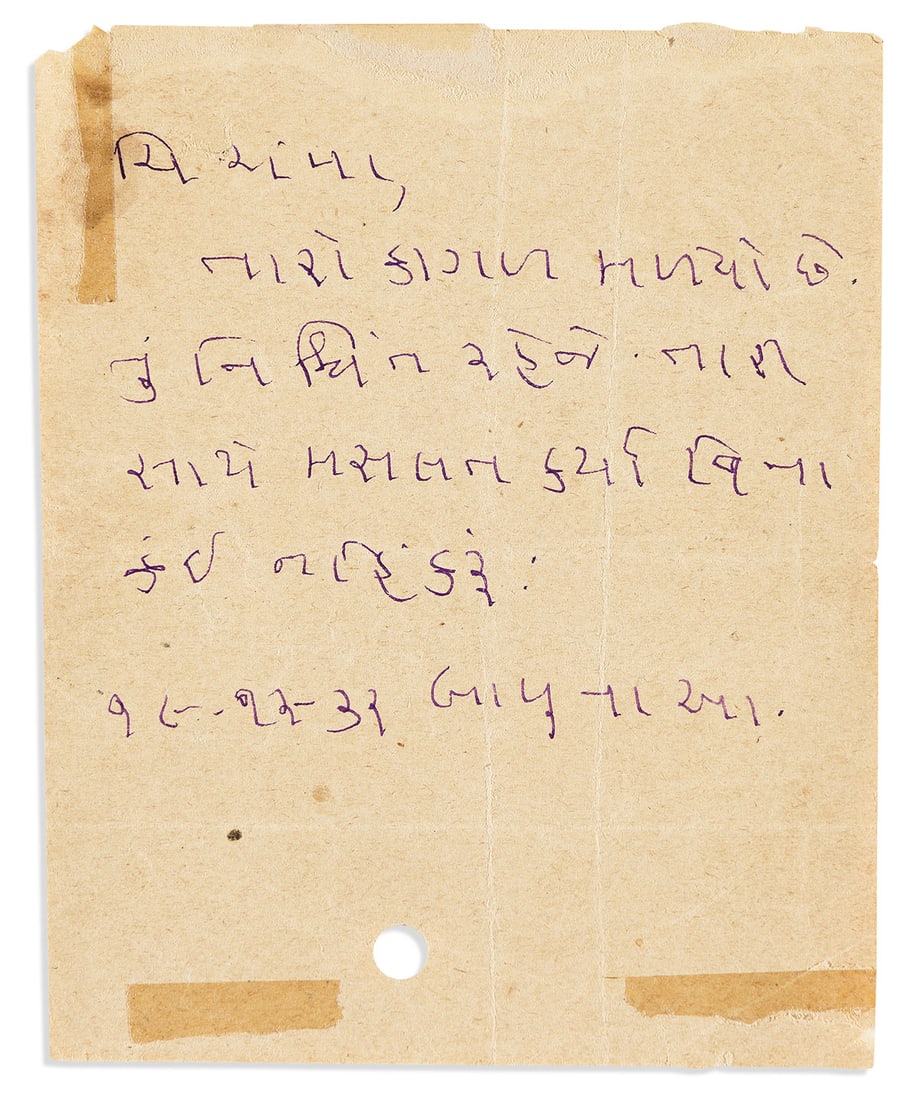 ચિ શાંતા,
તારો કાગળ મળ્યો છે.
તું નિશ્ચિંત રહેજે. તારા
સાથે મસલત કર્યા વિના
કંઈ નહિં કરૂં.
૧૯-૧૨-૩૨ બાપુ ના આ.